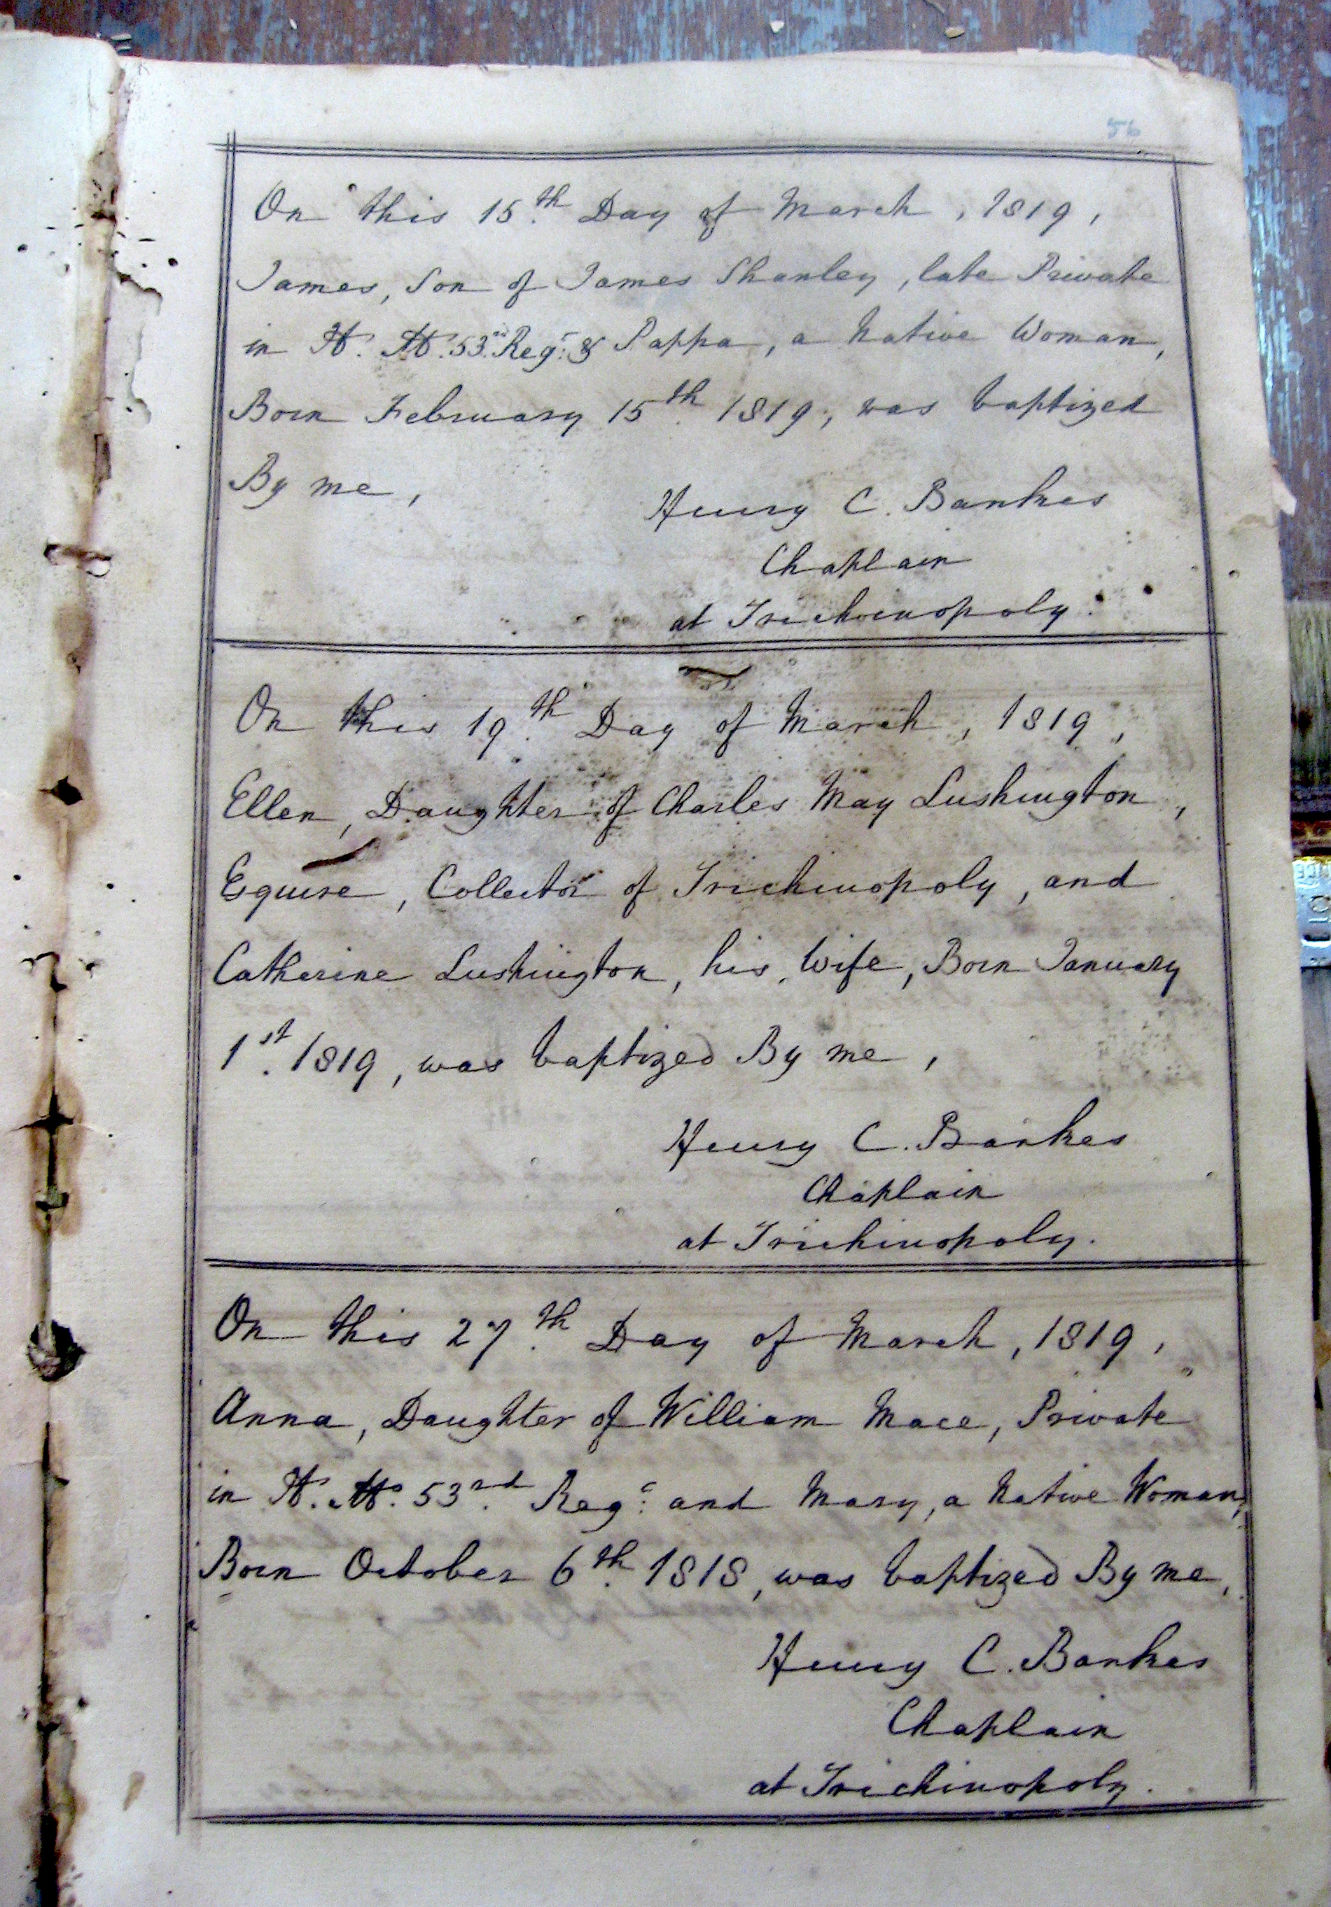 56
On this 15th. Day of March, 1819,
James, Son of James Shanley, late Private
in H. M. 53rd. Regt. & Pappa, a Native Woman,
Born February 15th. 1819, was baptized
By me,
Henry C. Bankes
Chaplain
at Trichinopoly.
On this 19th. Day of March, 1819,
Ellen, Daughter of Charles May Lushington,
Esquire, Collector of Trichinopoly, and
Catherine Lushington, his Wife, Born January
1st. 1819, was baptized By me,
Henry C. Bankes
Chaplain
at Trichinopoly.
On this 27th. Day of March, 1819,
Anna, Daughter of William Mace, Private
in H. M. 53rd. Regt. and Mary, a Native Woman,
Born October 6th. 1818, was baptized By me,
Henry C. Bankes
Chaplain
at Trichinopoly.